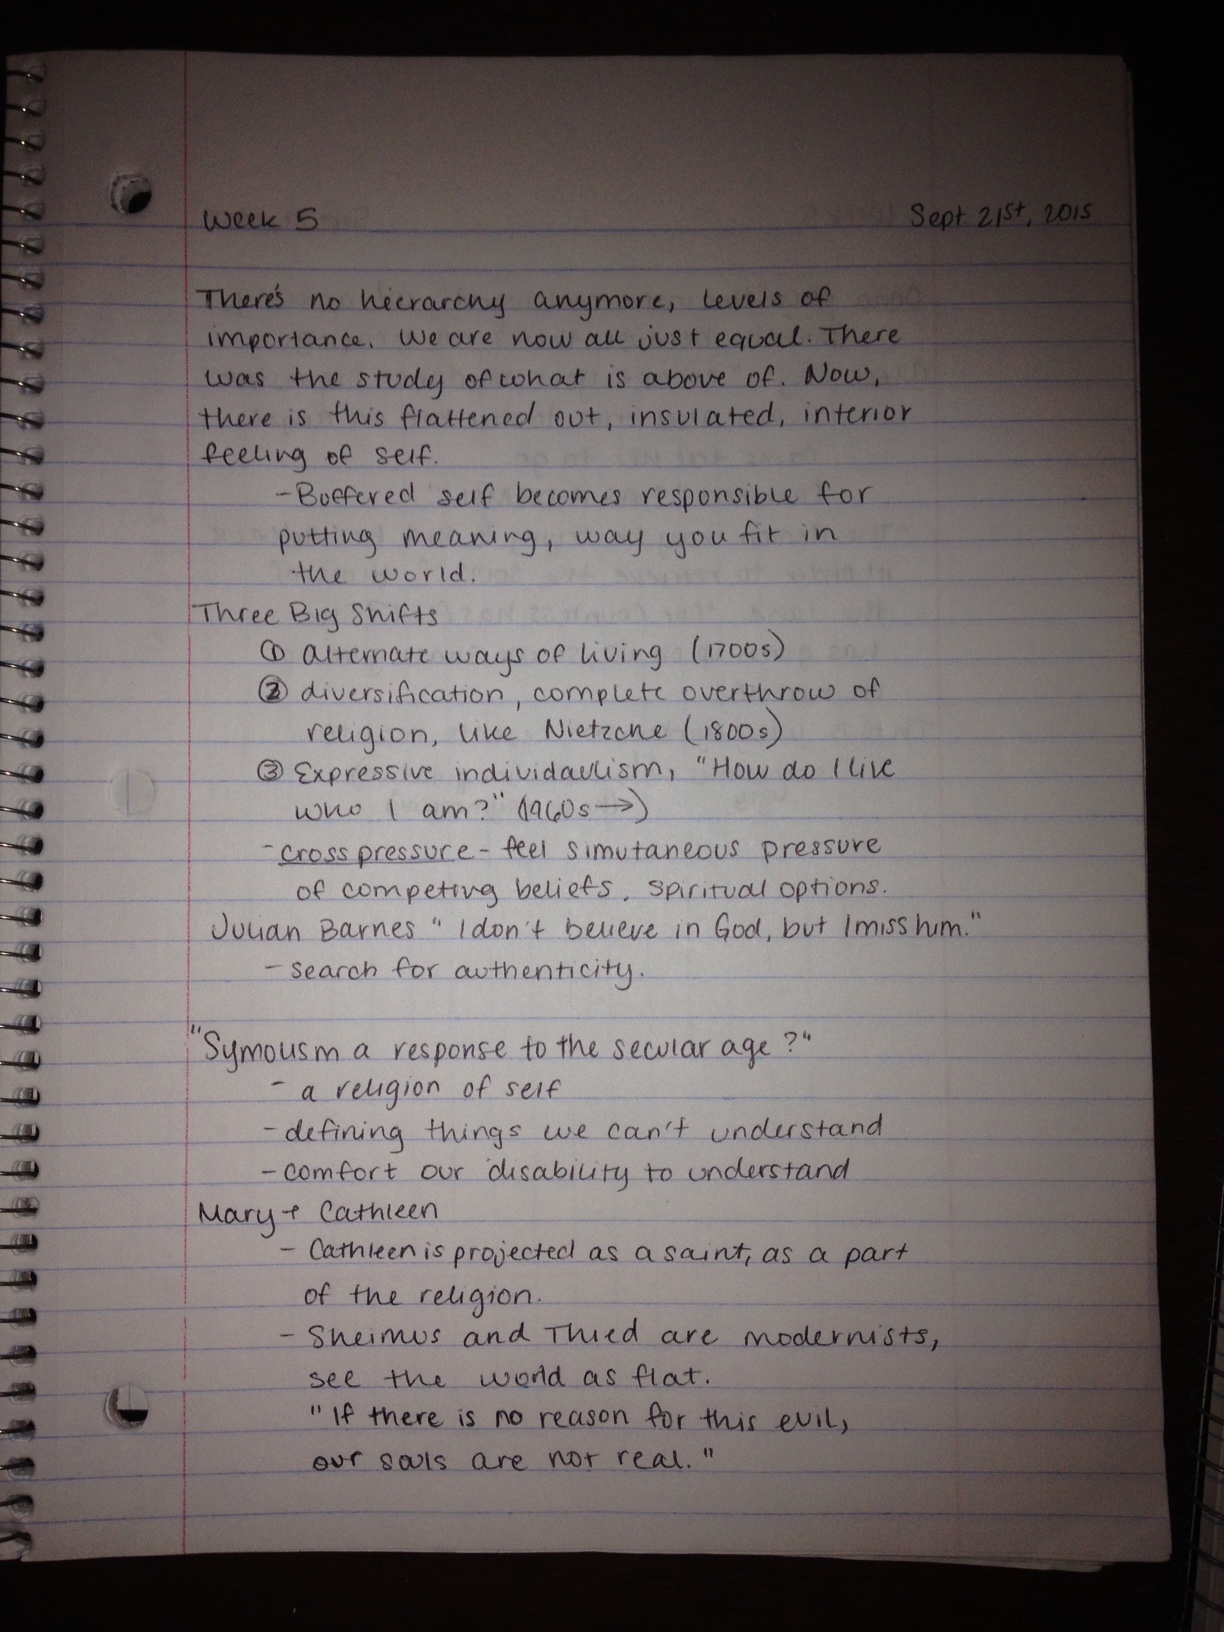 Week 5 Sept 21st, 2015
There's no hierarchy anymore, levels of
importance. We are now all just equal. There
was the study of what is above of. Now,
there is this flattened out, insulated, interior
feeling of self.
- Buffered self becomes responsible for
putting meaning, way you fit in
the world.
Three Big Shifts
① alternate ways of living (1700s)
② diversification, complete overthrow of
religion, like Nietzche (1800s)
③ Expressive individaulism, "How do I live
who I am?" (1960s →)
- cross pressure - feel simutaneous pressure
of competing beliefs, spiritual options.
Julian Barnes "I don't believe in God, but I miss him."
- search for authenticity.
"Symolism a response to the secular age?"
- a religion of self
- defining things we can't understand
- comfort our disability to understand
Mary + Cathleen
- Cathleen is projected as a saint, as a part
of the religion.
- Sheimus and Thied are modernists,
see the world as flat.
"If there is no reason for this evil,
our souls are not real."